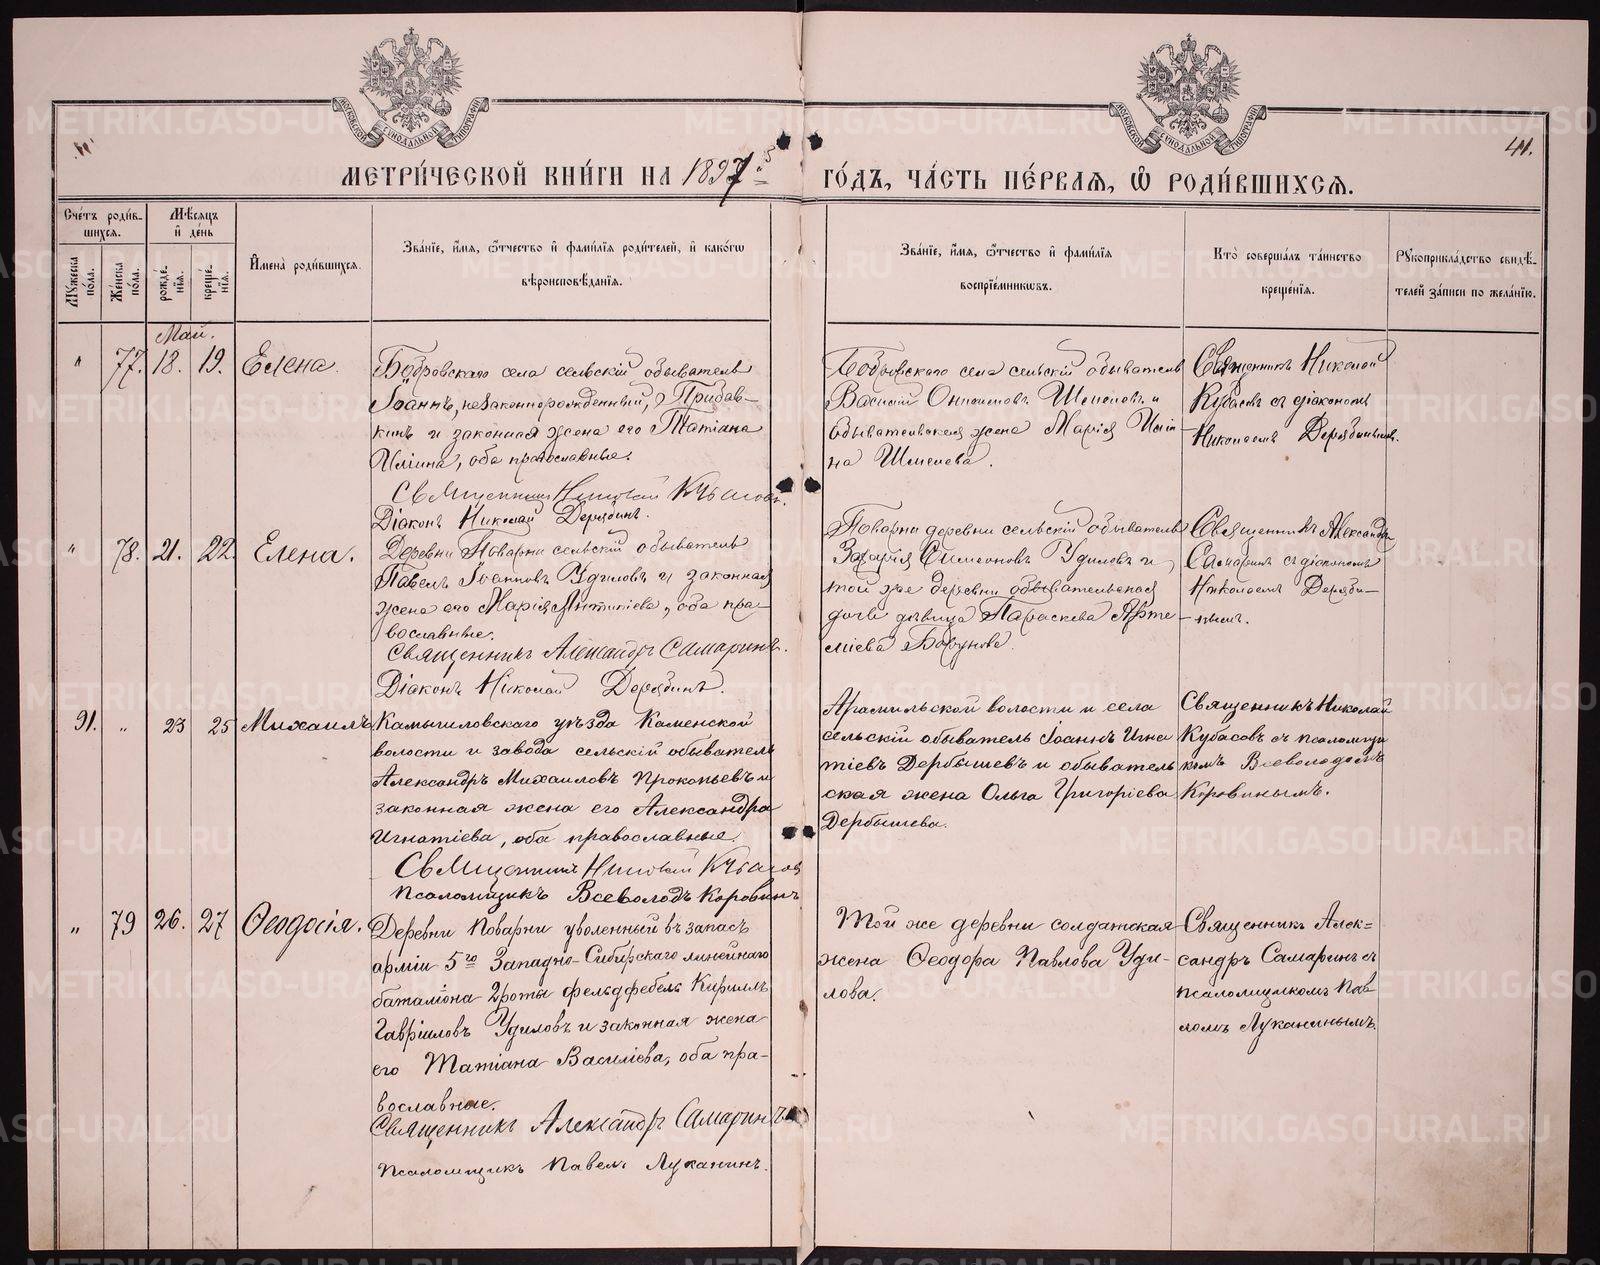 МОСКОВСКОЙ СѴНОДАЛЬНОЙ ТИПОГРАФІИ
МОСКОВСКОЙ СѴНОДАЛЬНОЙ ТИПОГРАФІИ
41.
МЕТРИ́ЧЕСКОЙ КНИ́ГИ НА 1897 й ГО́ДЪ, ЧА́СТЬ ПЕ́РВАЯ, Ѽ РОДИ́ВШИХСЯ.
Сче́тъ роди́в-
шихся.
Мѣ́сяцъ
и҆ де́нь
Му́жеска по́ла.
Же́нска по́ла.
рожде́нїя.
креще́нїя.
И҆мена̀ роди́вшихся.
Зва́нїе, и҆́мя, ѻ҆́тчество и҆ фами́лїя роди́телей, и҆ како́гѡ
вѣроисповѣ́данїя.
Зва́нїе, и҆́мя, ѻ҆́тчество и҆ фами́лїя
воспрїе́мникѡвъ.
Кто̀ соверша́лъ та́инство
креще́нїя.
Рꙋкоприкла́дство свидѣ́-
телей за́писи по жела́нїю.
Май.
" 77. 18. 19. Елена.
Бобровскаго села сельскій обыватель
Іоаннъ, незаконнорожденный, Прибав-
кинъ и законная жена его Татіана
Иліина, оба православные.
Священникъ Николай Кубасовъ.
Діаконъ Николай Дерябинъ.
Бобровскаго села сельскій обыватель
Василій Онисимовъ Шмелевъ и
обывательская жена Марія Иліи-
на Шмелева.
Священникъ Николай
Кубасовъ съ діакономъ
Николаемъ Дерябинымъ.
" 78. 21. 22. Елена.
Деревни Поварни сельскій обыватель
Павелъ Іоанновъ Удиловъ и законная
жена его Марія Антипіева, оба пра-
вославные.
Священникъ Александръ Самаринъ.
Діаконъ Николай Дерябинъ.
Поварни деревни сельскій обыватель
Захарія Симеоновъ Удиловъ и
той же деревни обывательская
дочь дѣвица Параскева Арте-
міева
Священникъ Александръ
Самаринъ съ діакономъ
Николаемъ Деряби-
нымъ.
91. " 23 25 Михаилъ
Камышловскаго уѣзда Каменской
волости и завода сельскій обыватель
Александръ Михаиловъ Прокопьевъ и
законная жена его Александра
Игнатіева, оба православные.
Священникъ Николай Кубасовъ
Псаломщикъ Всеволодъ Коровинъ
Арамильской волости и села
сельскій обыватель Іоаннъ Игна
тіевъ Дербышевъ и обыватель
ская жена Ольга Григоріева
Дербышева.
Священникъ Николай
Кубасовъ съ псаломщи
комъ Всеволодомъ
Коровинымъ.
" 79 26. 27 Ѳеодосія.
Деревни Поварни уволенный въ запасъ
арміи 5го Западно-Сибирскаго линейнаго
баталіона 2 роты фельдфебель Кириллъ
Гавріиловъ Удиловъ и законная жена
его Татіана Василіева, оба пра-
вославные.
Священникъ Александръ Самаринъ.
Псаломщикъ Павелъ Луканинъ.
Той же деревни солдатская
жена Ѳеодора Павлова Уди-
лова.
Священникъ Алек=
сандръ Самаринъ съ
псаломщикомъ Пав
ломъ Луканинымъ.
METRIKI.GASO-URAL.RU